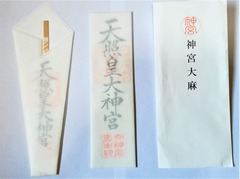 天照皇大神宮
天照皇大神宮
神宮
神宮大麻